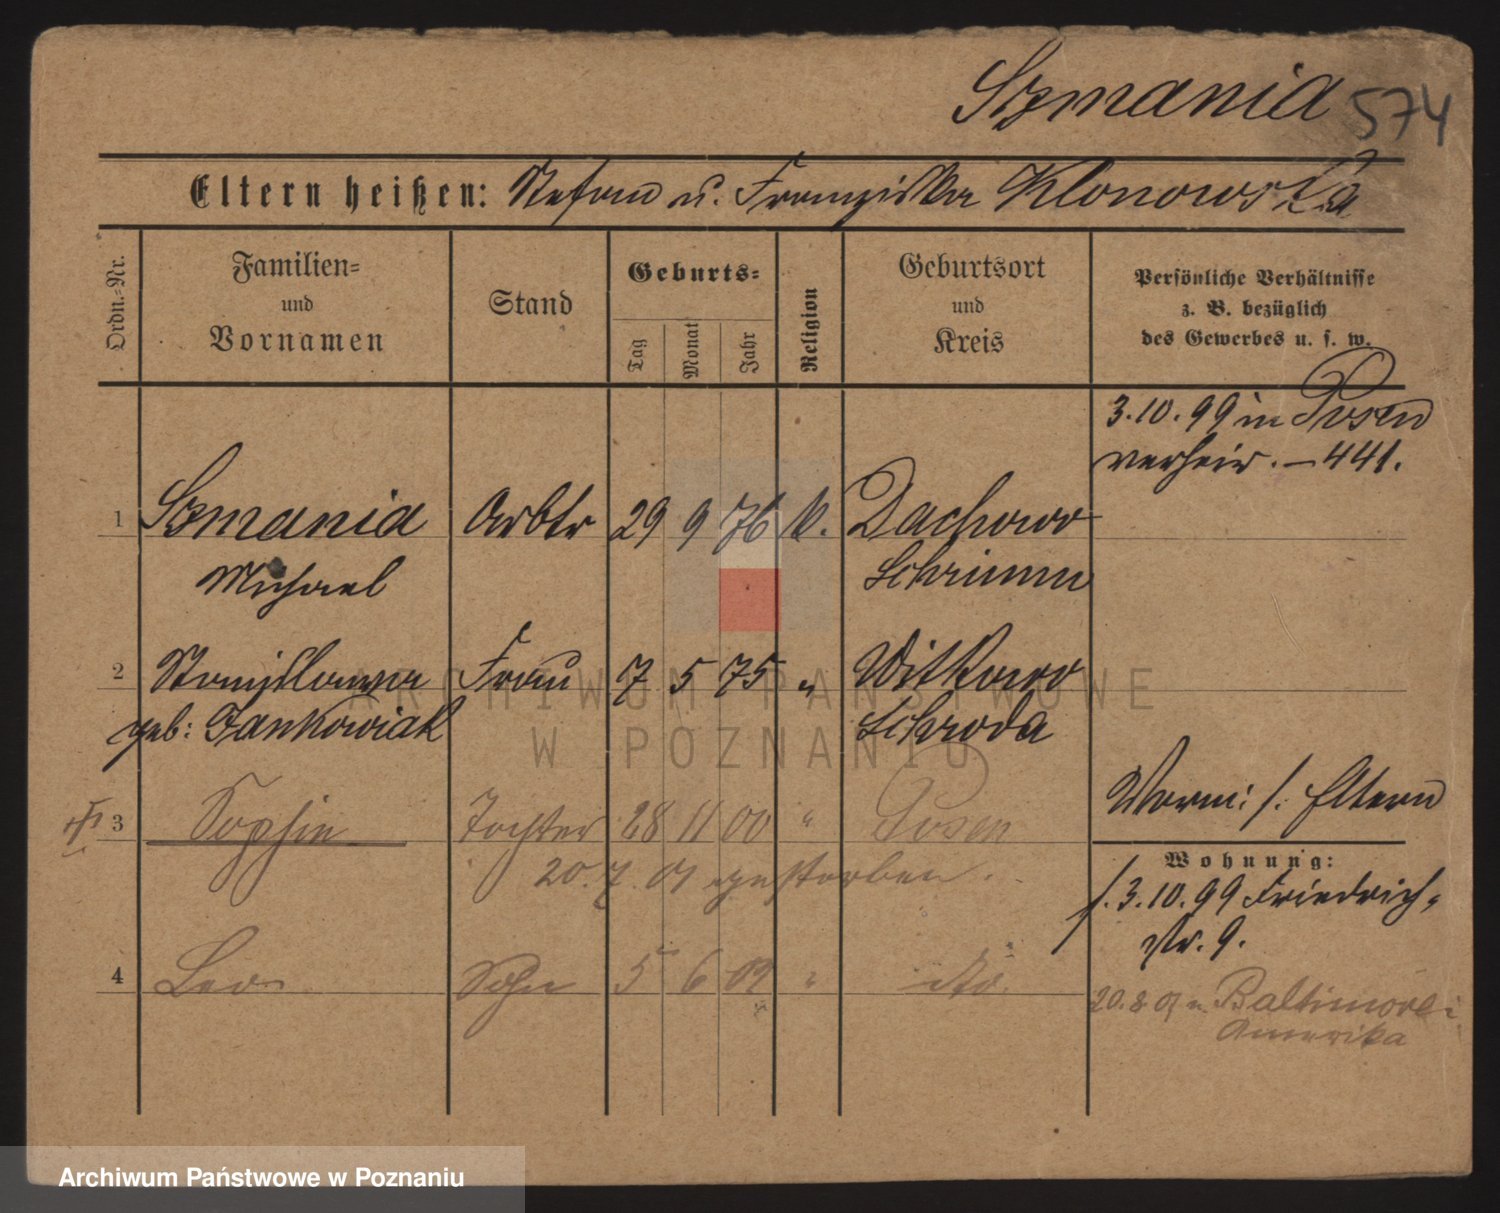 Szmania 574
Eltern heißen: Stefan u. Franziska Klonowska
Ordn.-Nr.
Familien-
und
Vornamen
Stand
Geburts-
Tag
Monat
Jahr
Religion
Geburtsort
und
Kreis
Persönliche Verhältnisse
z. B. bezüglich
des Gewerbes u. s. w.
3.10.99 in Posen
verheir. – 441.
1 Szmania Arbtr 29 9 76 k. Dachowo
Michael Schrimm
2 Stanislawa Frau 7 5 75 " Witkowo
geb: Jankowiak Schroda
Vorm: s. Eltern
3 Sophie Tochter 28 11 00 " Posen
20.7.01 gestorben.
Wohnung:
s. 3.10.99 Friedrich-
str. 9.
4 Leo Sohn 5 6 02 " do.
Baltimore i
Amerika
ARCHIWUM PAŃSTWOWE
W POZNANIU
Archiwum Państwowe w Poznaniu